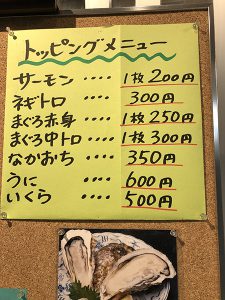 トッピングメニュー
サーモン ‥‥ 1枚 200円
ネギトロ ‥‥ 300円
まぐろ赤身 ‥‥ 1枚 250円
まぐろ中トロ ‥‥ 1枚 300円
なかおち ‥‥ 350円
うに ‥‥ 600円
いくら ‥‥ 500円